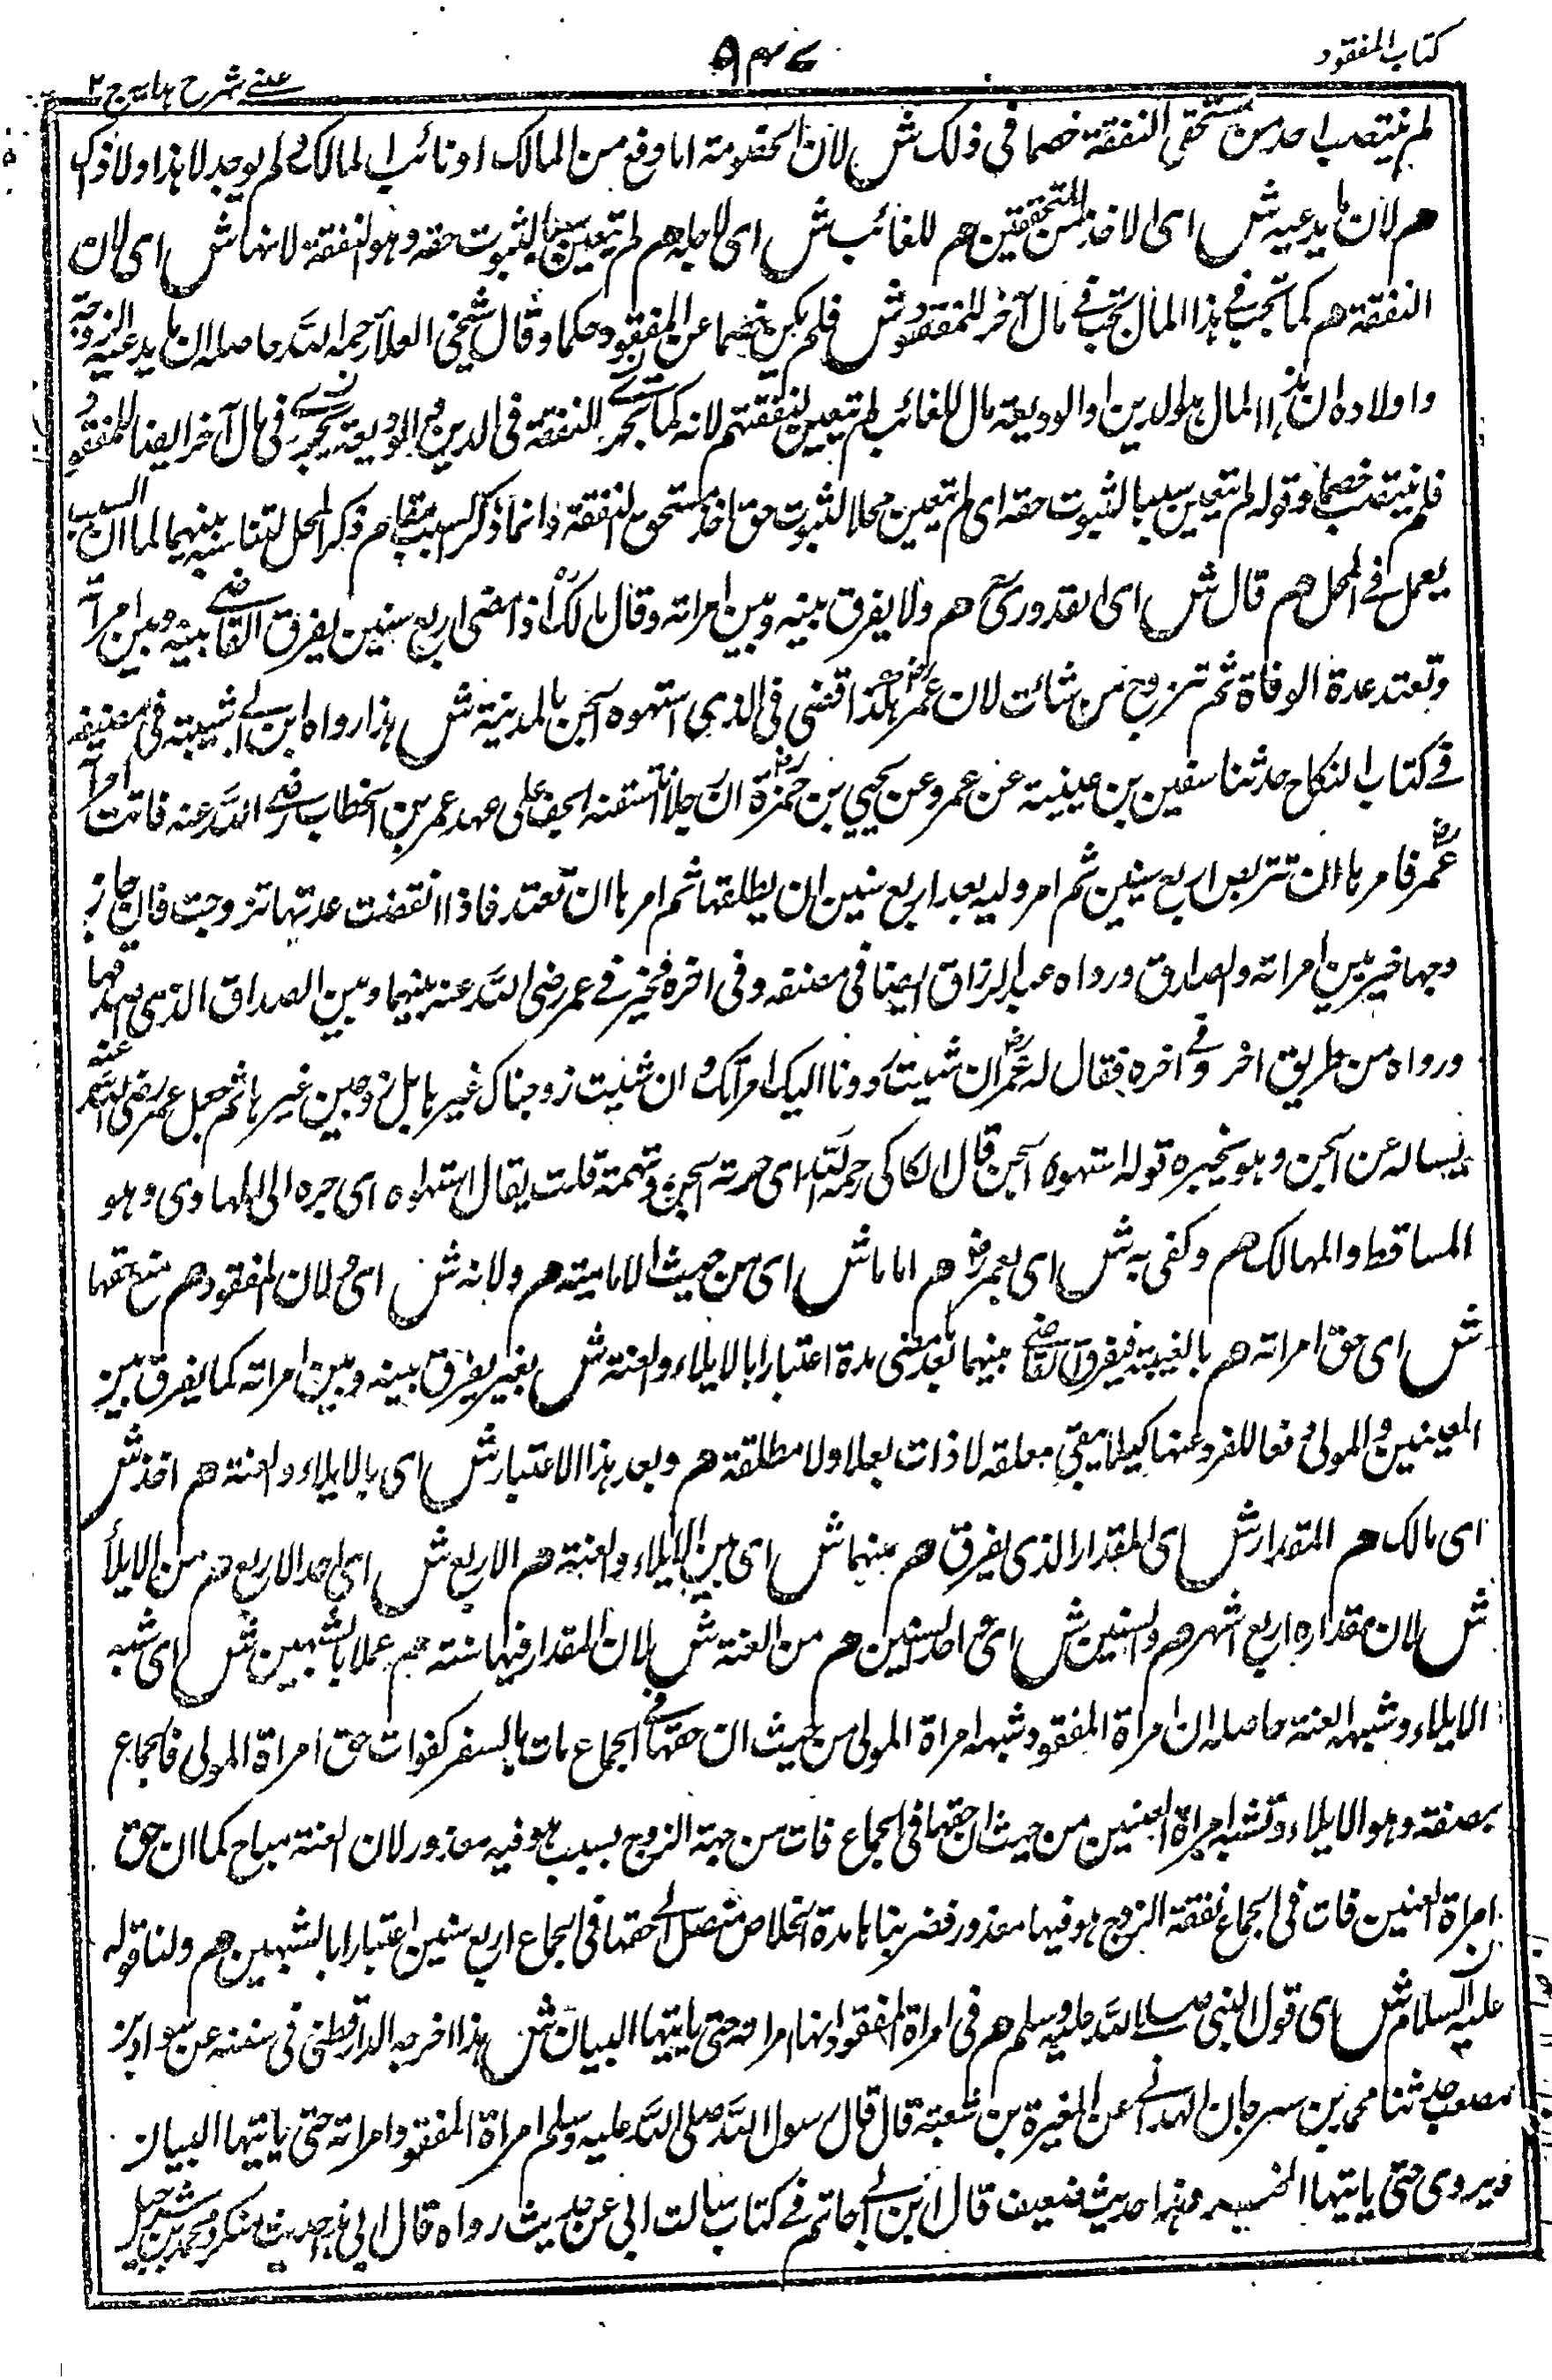 كتاب المفقود
٩٤٧
عيني شرح هدايه ج ٢
لم ينتصب احد من مستحقي النفقة خصما في ذلك ش لان الخصومة انما وقع من المالك او نائب المالك ولم يوجد لا هذا ولا ذاك
هم لان ما يدعيه ش اي الاخذ من المستحقين هم للغائب ش اي لاجله هم لم يتعين سببا لثبوت حقه وهو النفقة لانها ش اي لان
النفقة هم كما تجب في هذا المال تجب في مال آخر للمفقود ش فلم يكن خصما عن المفقود حكما وقال شيخي العلا رحمه الله حاصله ان ما يدعيه الزوجة
واولاده ان هذا المال هو الدين او الوديعة مال للغائب لم يتعين لنفقتهم لانه كما تجب النفقة في الدين والوديعة تجب في مال آخر ايضا للمفقود
فلم ينتصب خصما وقوله لم يتعين سببا لثبوت حقه اي لم يتعين محلا لثبوت حق اخذ مستحق النفقة وانما ذكر السبب مقام ذكر المحل لتناسبه بينهما لما ان السبب
يعمل في المحل هم قال ش اي القدوري هم ولا يفرق بينه وبين امراته وقال مالك اذا مضى اربع سنين يفرق القاضي بينه وبين امرأته
وتعتد عدة الوفاة ثم تزوج من شائت لان عمر رض هكذا قضى في الذي استهوه الجن بالمدينة ش هذا رواه ابن ابي شيبة في مصنفه
في كتاب النكاح حدثنا سفين بن عيينة عن عمرو عن يحيي بن حمزة رض ان رجلا استفته الجن على عهد عمر بن الخطاب رضي الله عنه فاتت امرأته
عمر رض فامرها ان تتربص اربع سنين ثم امر وليه بعد اربع سنين ان يطلقها ثم امرها ان تعتد فاذا انقضت عدتها تزوجت فان جاز
وجها خير بين امراته والصداق ورواه عبد الرزاق ايضا في مصنفه وفي اخره فخير في عمر رضي الله عنه بينهما وبين الصداق الذي اصدقها
ورواه من طريق اخر وفي اخره فقال له عمر رض ان شيت رددنا اليك امرأتك وان شيت زوجناك غيرها بل زوجين غيرها ثم جعل عمر رضي الله عنه
يساله عن الجن وهو يخبره قوله استهوه الجن قال الكاكي رحمه الله اي جرته الجن وتهمته قلت يقال استهواه اي جره الى المهاوى وهو
المساقط والمهالك هم وكفى به ش اي بعمر رض هم اماما ش اي من حيث الامامية هم ولانه ش اي ولان المفقود هم منع حقها
ش اي حق امراته هم بالغيبة فيفرق القاضي بينهما بعد مضى مدة اعتبارا بالايلاء والعنة ش بغير يفرق بينه وبين امراته كما يفرق بين
العينين والمولى دفعا للضرر عنها كيلا يبقى معلقه لا ذات بعلا ولا مطلقة هم وبعد هذا الاعتبار ش اي بالايلاء والعنة هم اخذ ش
اي مالك هم المقدار ش اي المقدار الذي يفرق هم بينهما ش اي بين الايلاء والعنة هم الاربع ش اي احد الاربع هم من الايلأ
ش لان مقداره اربع اشهر هم والسنين ش اي اخذ السنين هم من العنة ش لان المقدار فيها سنته هم عملا بالشبهين ش اي شبه
الايلاء وشبه العنة حاصله ان امرأة المفقود شبه امراة المولى من حيث ان حقها في الجماع مات بالسفر كفوات حق امراة المولى فالجماع
بصفته وهو الايلاء وتشبه امرأة العنين من حيث ان حقها في الجماع فات من جهة الزوج بسبب هو فيه معذور لان العنة مباح كما ان حق
امراة العنين فات في الجماع نفقة الزوج هو فيها معذور فضربنا بها مدة الخلاص متصل الى حقها في الجماع اربع سنين اعتبارا بالشبهين هم ولنا قوله
عليه السلام ش اي قول النبي صلى الله عليه وسلم هم في امراة المفقود انها امراته حتى ياتيها البيان ش هذا اخرجه الدارقطني في سننه عن سوار بن
مصعب حدثنا محمد بن سرجان الهمداني عن المغيرة بن شعبة قال قال رسول الله صلى الله عليه وسلم امراة المفقود امراته حتى ياتيها البيان
ويروى حتى ياتيها الخبر وهذا حديث ضعيف قال ابن ابي حاتم في كتاب سالت ابي عن حديث رواه قال ابي هذا حديث منكر ومحمد بن شرحبيل